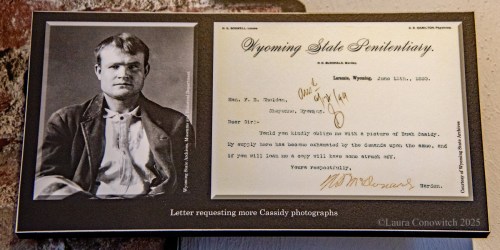 Wyoming State Penitentiary.
Laramie, Wyoming, June 15th, 1898.
Hon. F. E.
Cheyenne, Wyoming.
Dear Sir:-
Would you kindly oblige me with a picture of Butch Cassidy.
My supply here has become exhausted by the demands upon the same. And
if you will loan me a copy will have some struck off.
Yours respectfully,
Warden.
Wyoming State Archives, Museums
Courtesy of Wyoming State Archives
Letter requesting more Cassidy photographs
©Laura Conowitch 2025